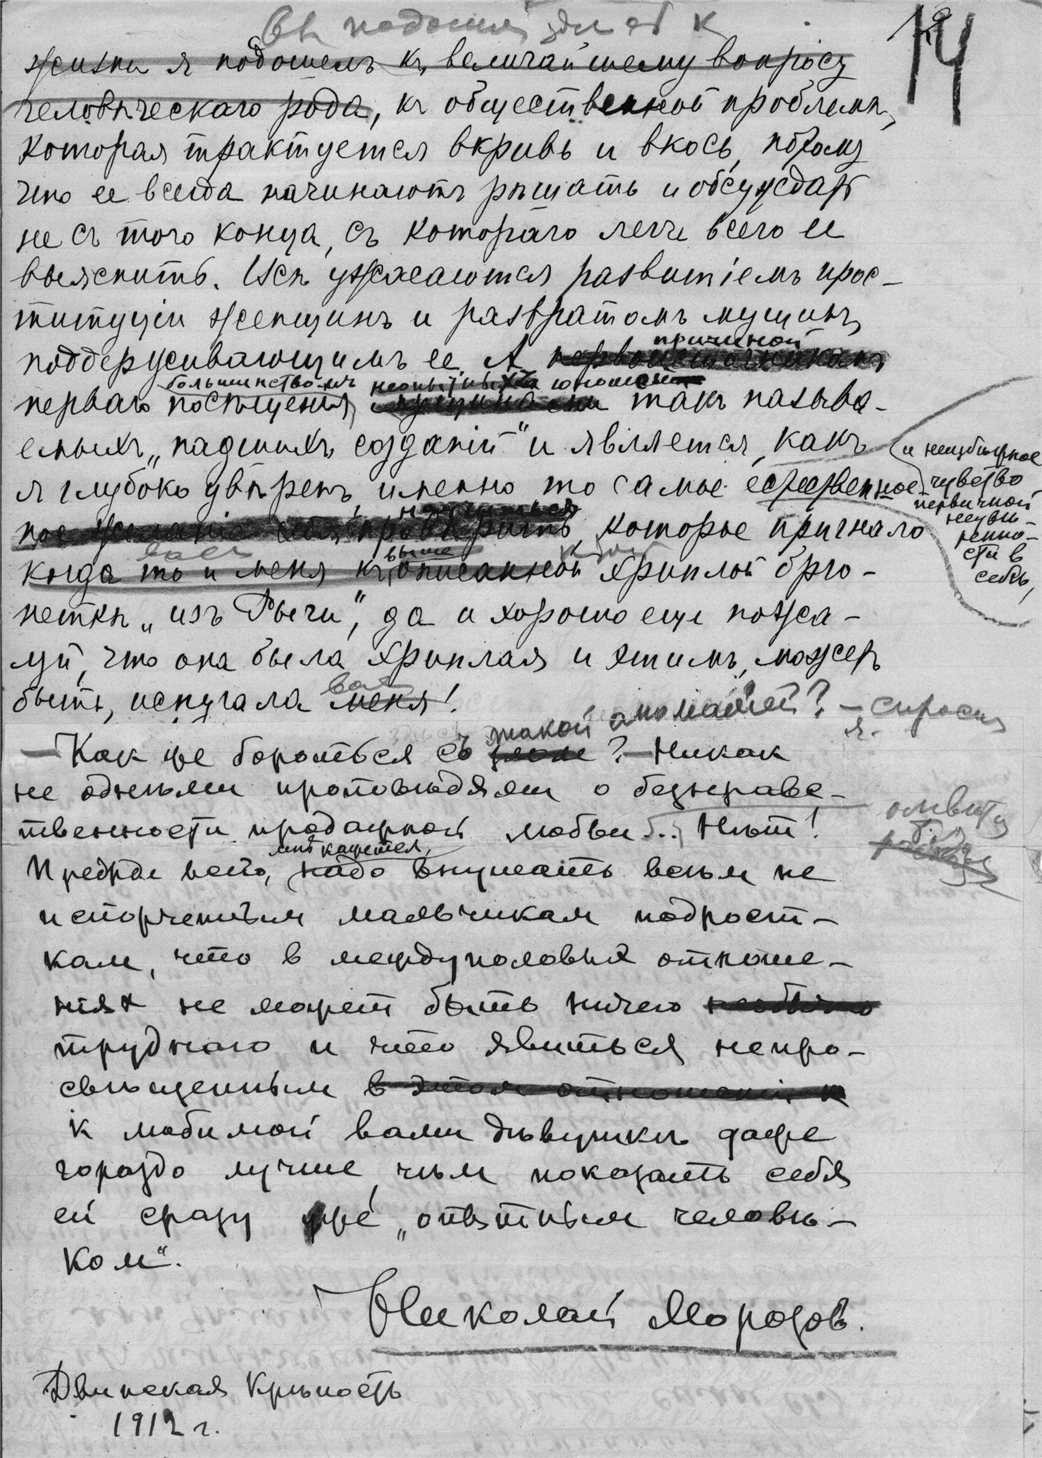 вы подошли здесь к
14
жизни я подошелъ къ величайшему вопросу
человѣческаго рода, къ общественной проблемѣ,
которая трактуется вкривь и вкось, потому
что ее всегда начинаютъ рѣшать и обсуждать
не съ того конца, съ котораго легче всего ее
выяснить. Всѣ ужасаются развитіемъ прос-
титуціи женщинъ и развратомъ мущинъ,
поддерживающимъ ее. А причиной
большинствомъ неопытныхъ юношей
перваго посѣщенія такъ называ-
емыхъ „падшихъ созданій“ и является, какъ
я глубоко увѣренъ, именно то самое естественное
и неизбѣжное чувство первичной неувѣ-
ренно-
сти в
себѣ,
желаніе себя провѣрить, которое пригнало
васъ
когда то и меня къ выше описанной хриплой брю-
неткѣ „изъ Рѣчи“, да и хорошо еще пожа-
луй, что она была хриплая и этимъ, можетъ
быть, испугала васъ меня!
— Как же бороться съ такой аномаліей? — спросилъ
я.
— Никак
не одними проповѣдями о безнравс-
твенности продажной любви... Нѣт!
отвѣтил
мнѣ кажется,
Прежде всего, надо внушать всем не
испорченным мальчикам подрост-
кам, что в междуполовых отноше-
ніях не может быть ничего
труднаго и что явиться непро-
свѣщенным в этом отношеніи к
к любимой вами дѣвушкѣ даже
гораздо лучше, чѣм показать себя
ей сразу уже „опытным человѣ-
ком“.
Николай Морозов.
Двинская Крѣпость
1912 г.